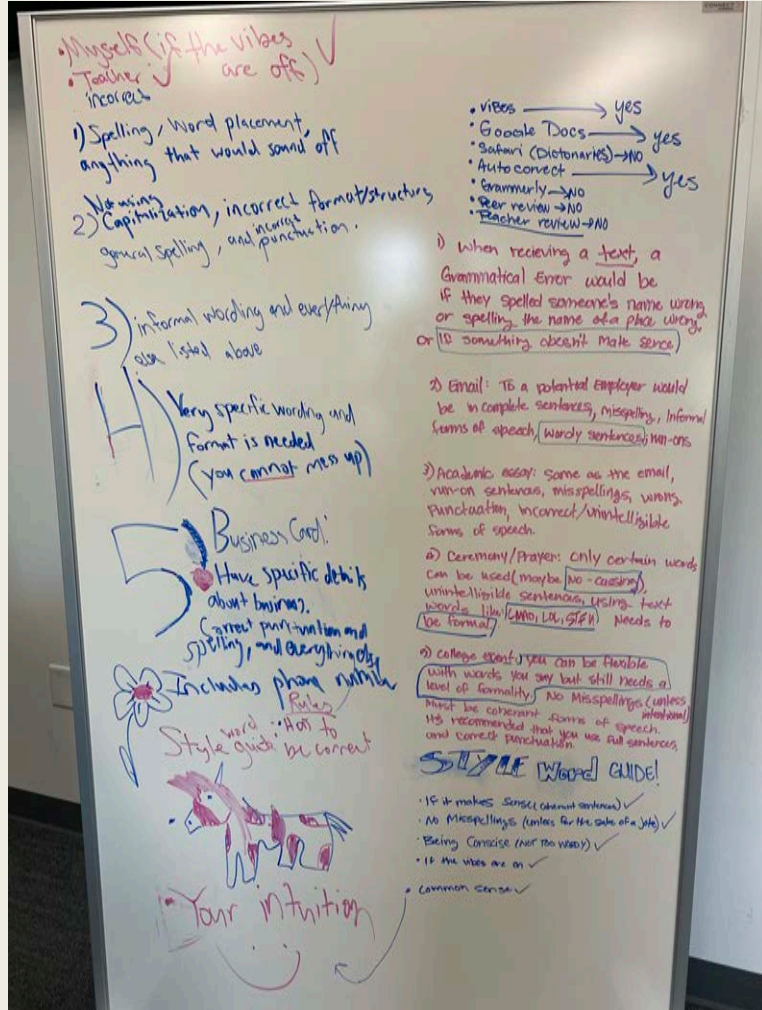 • Myself (if the vibes
are off) ✓
• Teacher ✓
incorrect
1) Spelling, word placement,
anything that would sound off
Not using
2) Capitalization, incorrect format/structure,
general spelling, and incorrect punctuation.
3) informal wording and everything
listed above
4) Very specific wording and
format is needed
(you cannot mess up)
5) Business Card:
Have specific details
about business.
Correct punctuation and
spelling, and everything else
Includes phone number
Rules
word : How to
Style guide be correct
• Your intuition
• vibes → yes
• Google Docs → yes
• Safari (Dictonaries) → NO
• Autocorrect → yes
• Grammerly → NO
• Peer review → NO
• Teacher review → NO
1) When recieving a text, a
Grammatical Error would be
if they spelled someone's name wrong
or spelling the name of a place wrong,
or if something doesn't make sence
2) Email: To a potential Employer would
be incomplete sentences, misspelling, Informal
forms of speech, wordy sentences, run-ons
3) Academic essay: Same as the email,
run-on sentences, misspellings, wrong
punctuation, incorrect/unintelligible
forms of speech.
Ceremony/Prayer: Only certain words
can be used (maybe No-cussing),
unintelligible sentences, using text
words like (LMAO, LOL, STFU) Needs to
be formal
college event, you can be flexible
with words you say but still needs a
level of formality, No Misspellings (unless
intentional)
Must be coherant forms of speech.
It's recommended that you use full sentences,
and correct punctuation.
STYLE Word GUIDE!
• If it makes Sense (coherent sentences) ✓
• No Misspellings (unless for the sake of a joke) ✓
• Being Conscise (NOT TOO WORDY) ✓
• If the vibes are on ✓
• common sense ✓